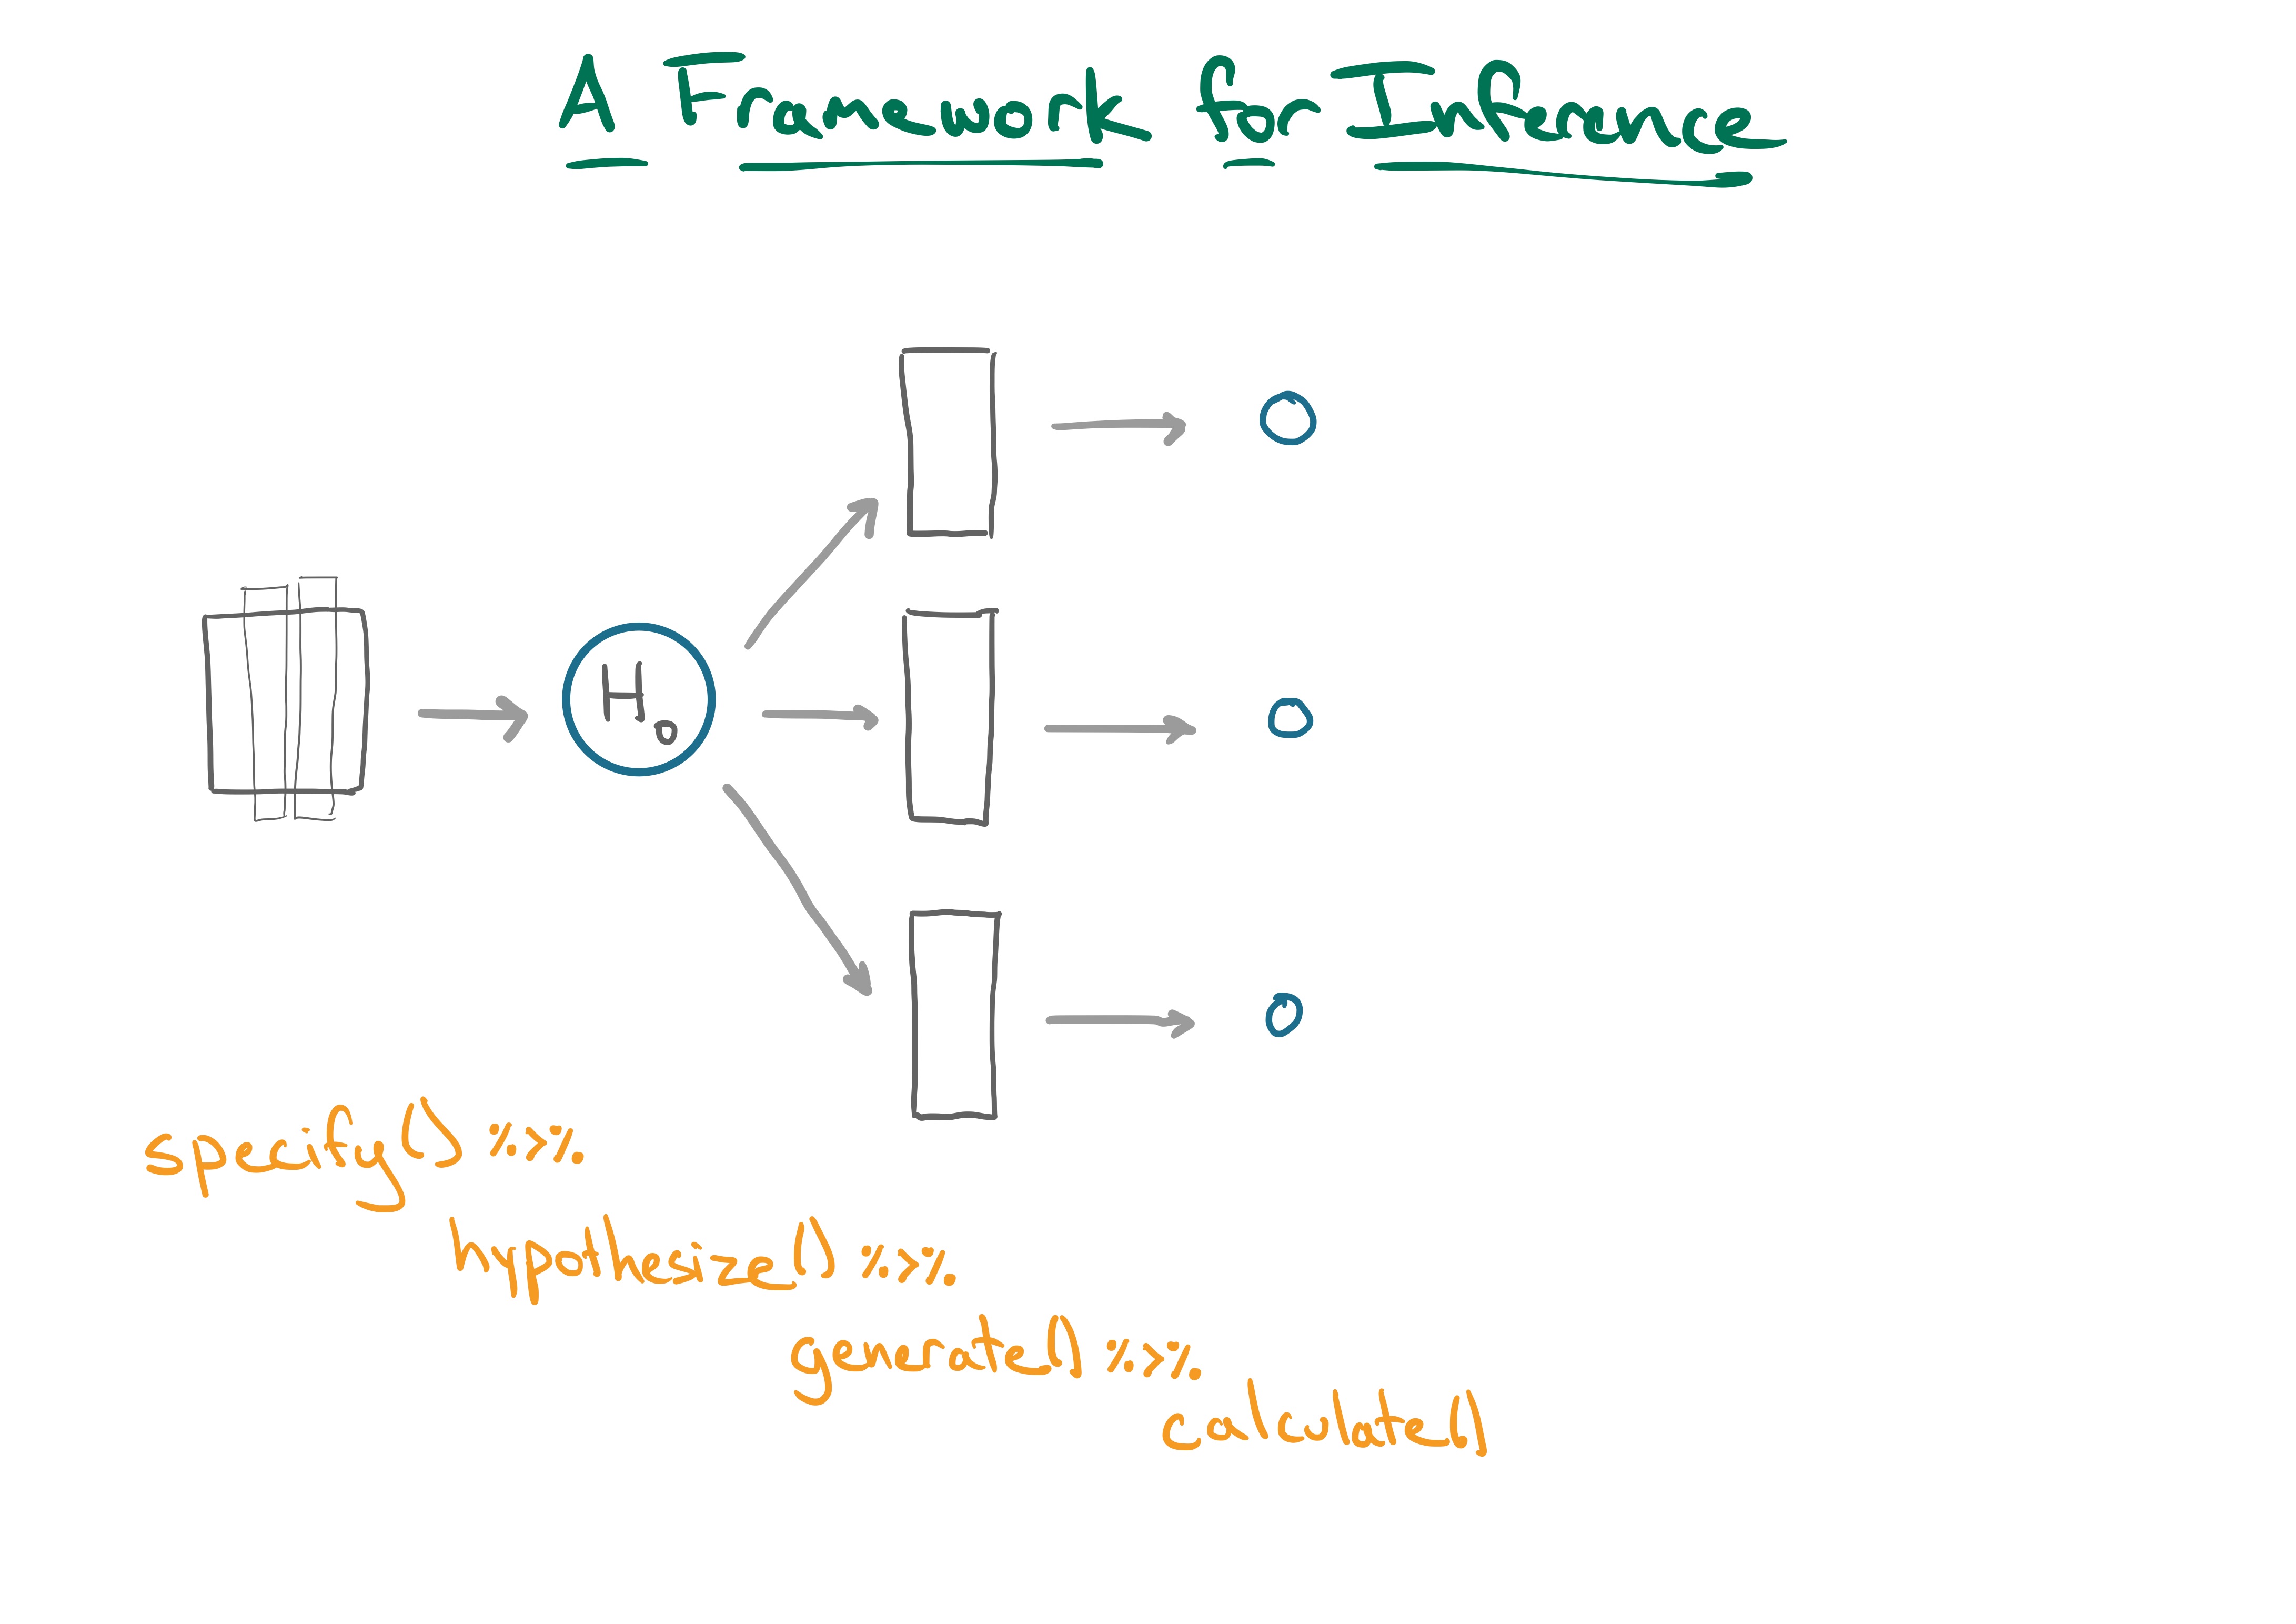 A Framework for Inference
H₀
specify() %>%
hypothesize() %>%
generate() %>%
calculate()